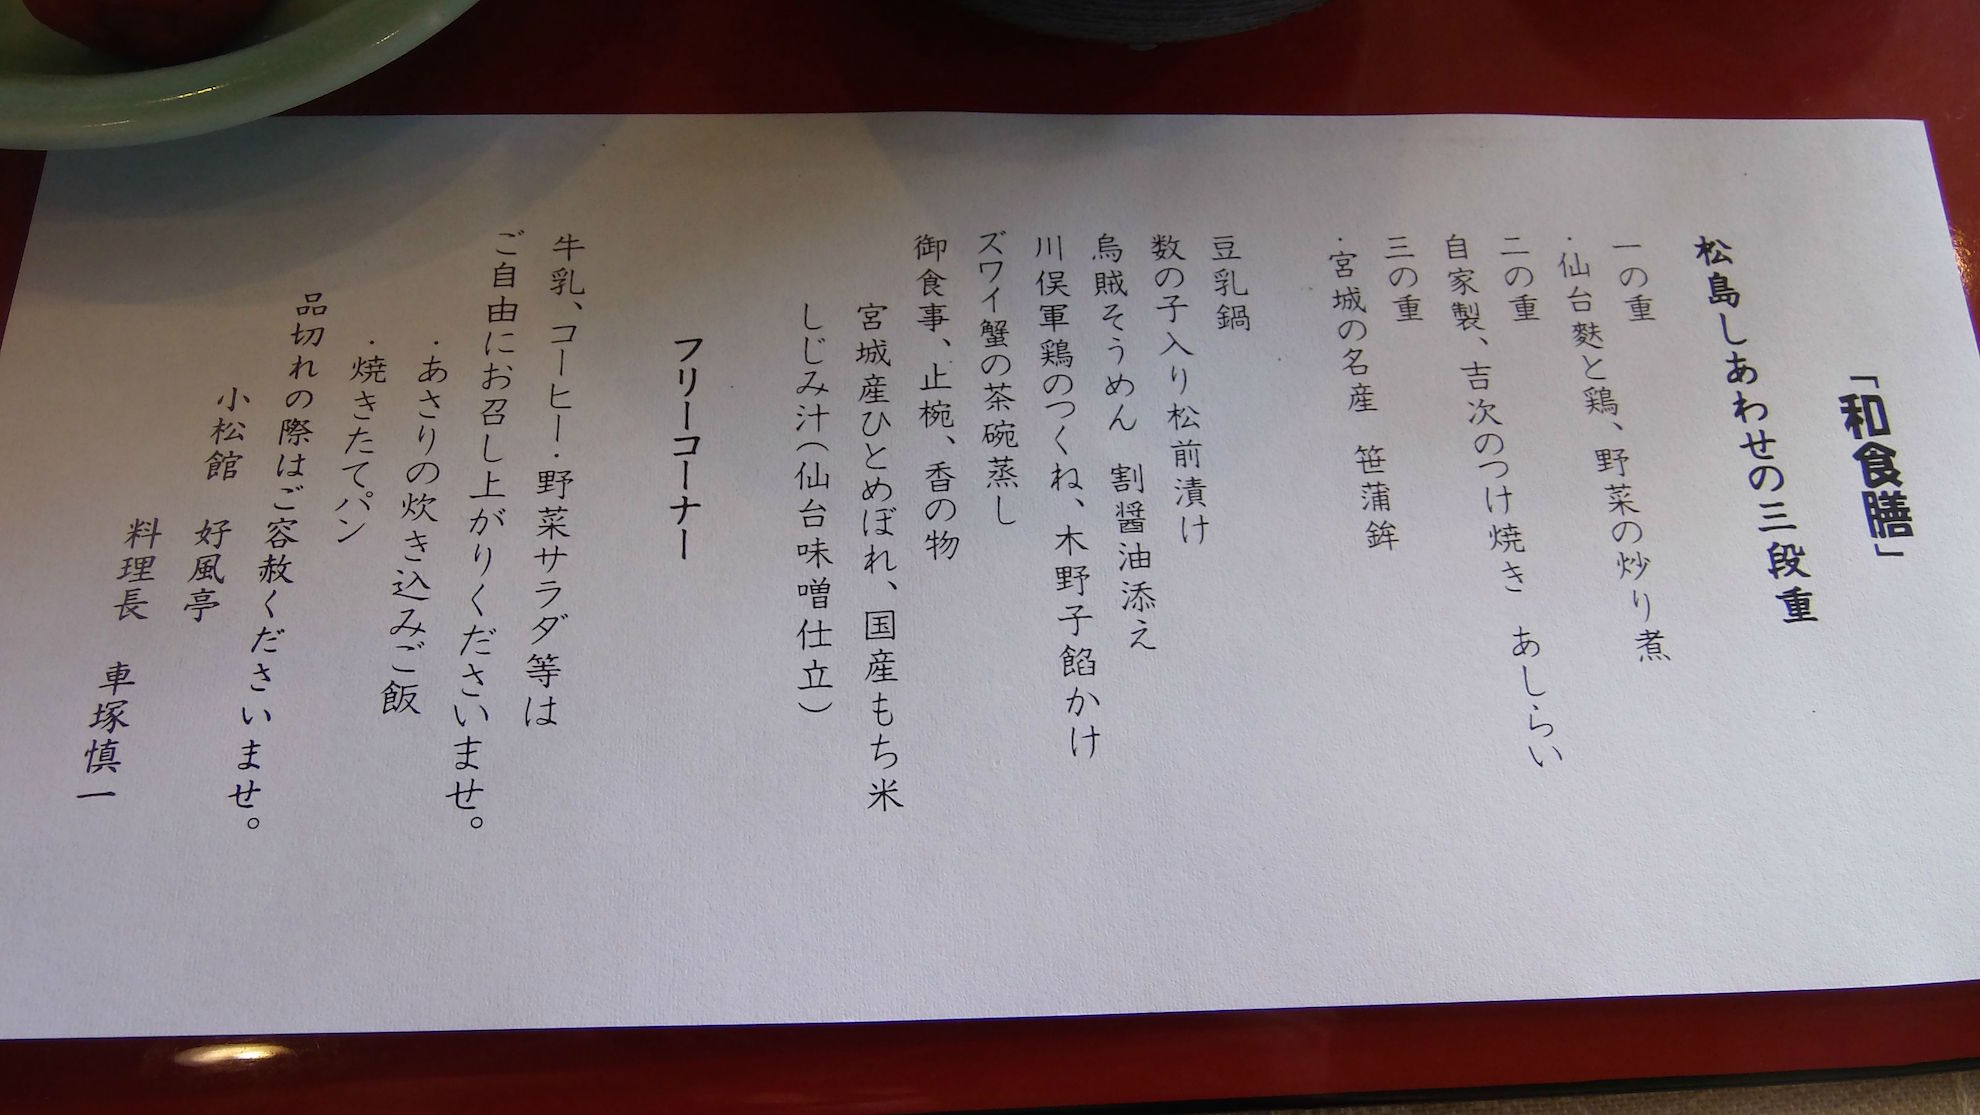 「和食膳」
松島しあわせの三段重
一の重
・仙台麩と鶏、野菜の炒り煮
二の重
自家製、吉次のつけ焼き　あしらい
三の重
・宮城の名産　笹蒲鉾
豆乳鍋
数の子入り松前漬け
烏賊そうめん　割醤油添え
川俣軍鶏のつくね、木野子餡かけ
ズワイ蟹の茶碗蒸し
御食事、止椀、香の物
宮城産ひとめぼれ、国産もち米
しじみ汁（仙台味噌仕立）
フリーコーナー
牛乳、コーヒー・野菜サラダ等は
ご自由にお召し上がりくださいませ。
・あさりの炊き込みご飯
・焼きたてパン
品切れの際はご容赦くださいませ。
小松館　好風亭
料理長　車塚慎一